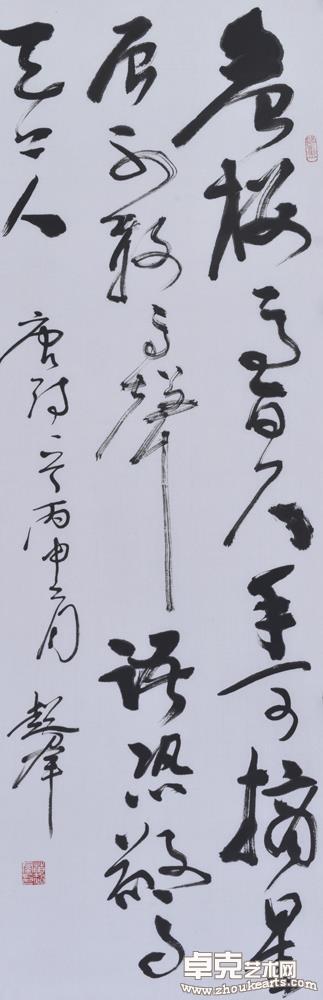 危樓高百尺手可摘星
辰不敢高聲語恐驚
天上人
唐詩一首丙申二月
卓克艺术网
www.zhoukearts.com